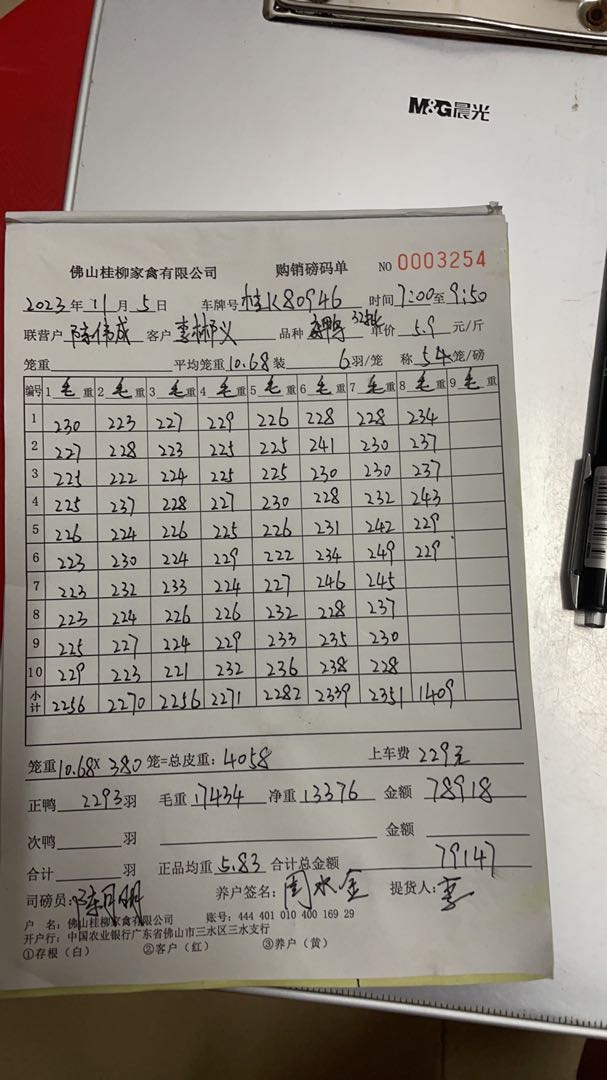 M&G晨光
佛山桂柳家禽有限公司 购销磅码单 NO 0003254
2023年11月5日 车牌号 桂K80946 时间 7:00至9:50
联营户 陈伟成 客户 李彬义 品种 鸭 单价 5.9 元/斤
笼重 平均笼重 10.68 装 6 羽/笼 称 54 笼/磅
编号 1 毛重 2 毛重 3 毛重 4 毛重 5 毛重 6 毛重 7 毛重 8 毛重 9 毛重
1 230 223 227 229 226 228 228 234
2 227 228 223 225 225 241 230 237
3 225 222 224 225 225 230 230 237
4 225 237 228 227 230 228 232 243
5 226 224 226 225 226 231 242 229
6 223 230 224 229 222 234 249 229
7 223 232 233 224 227 246 245
8 223 224 226 226 232 228 237
9 225 227 224 229 233 235 230
10 229 223 221 232 236 238 228
小计 2256 2270 2256 2271 2282 2339 2351 1409
笼重 10.68× 380 笼=总皮重: 4058 上车费 229元
正鸭 2293 羽 毛重 17434 净重 13376 金额 78918
次鸭 羽 金额
合计 羽 正品均重 5.83 合计总金额 79147
司磅员: 养户签名: 周水金 提货人: 李
户 名: 佛山桂柳家禽有限公司 账号: 444 401 010 400 169 29
开户行: 中国农业银行广东省佛山市三水区三水支行
①存根（白） ②客户（红） ③养户（黄）